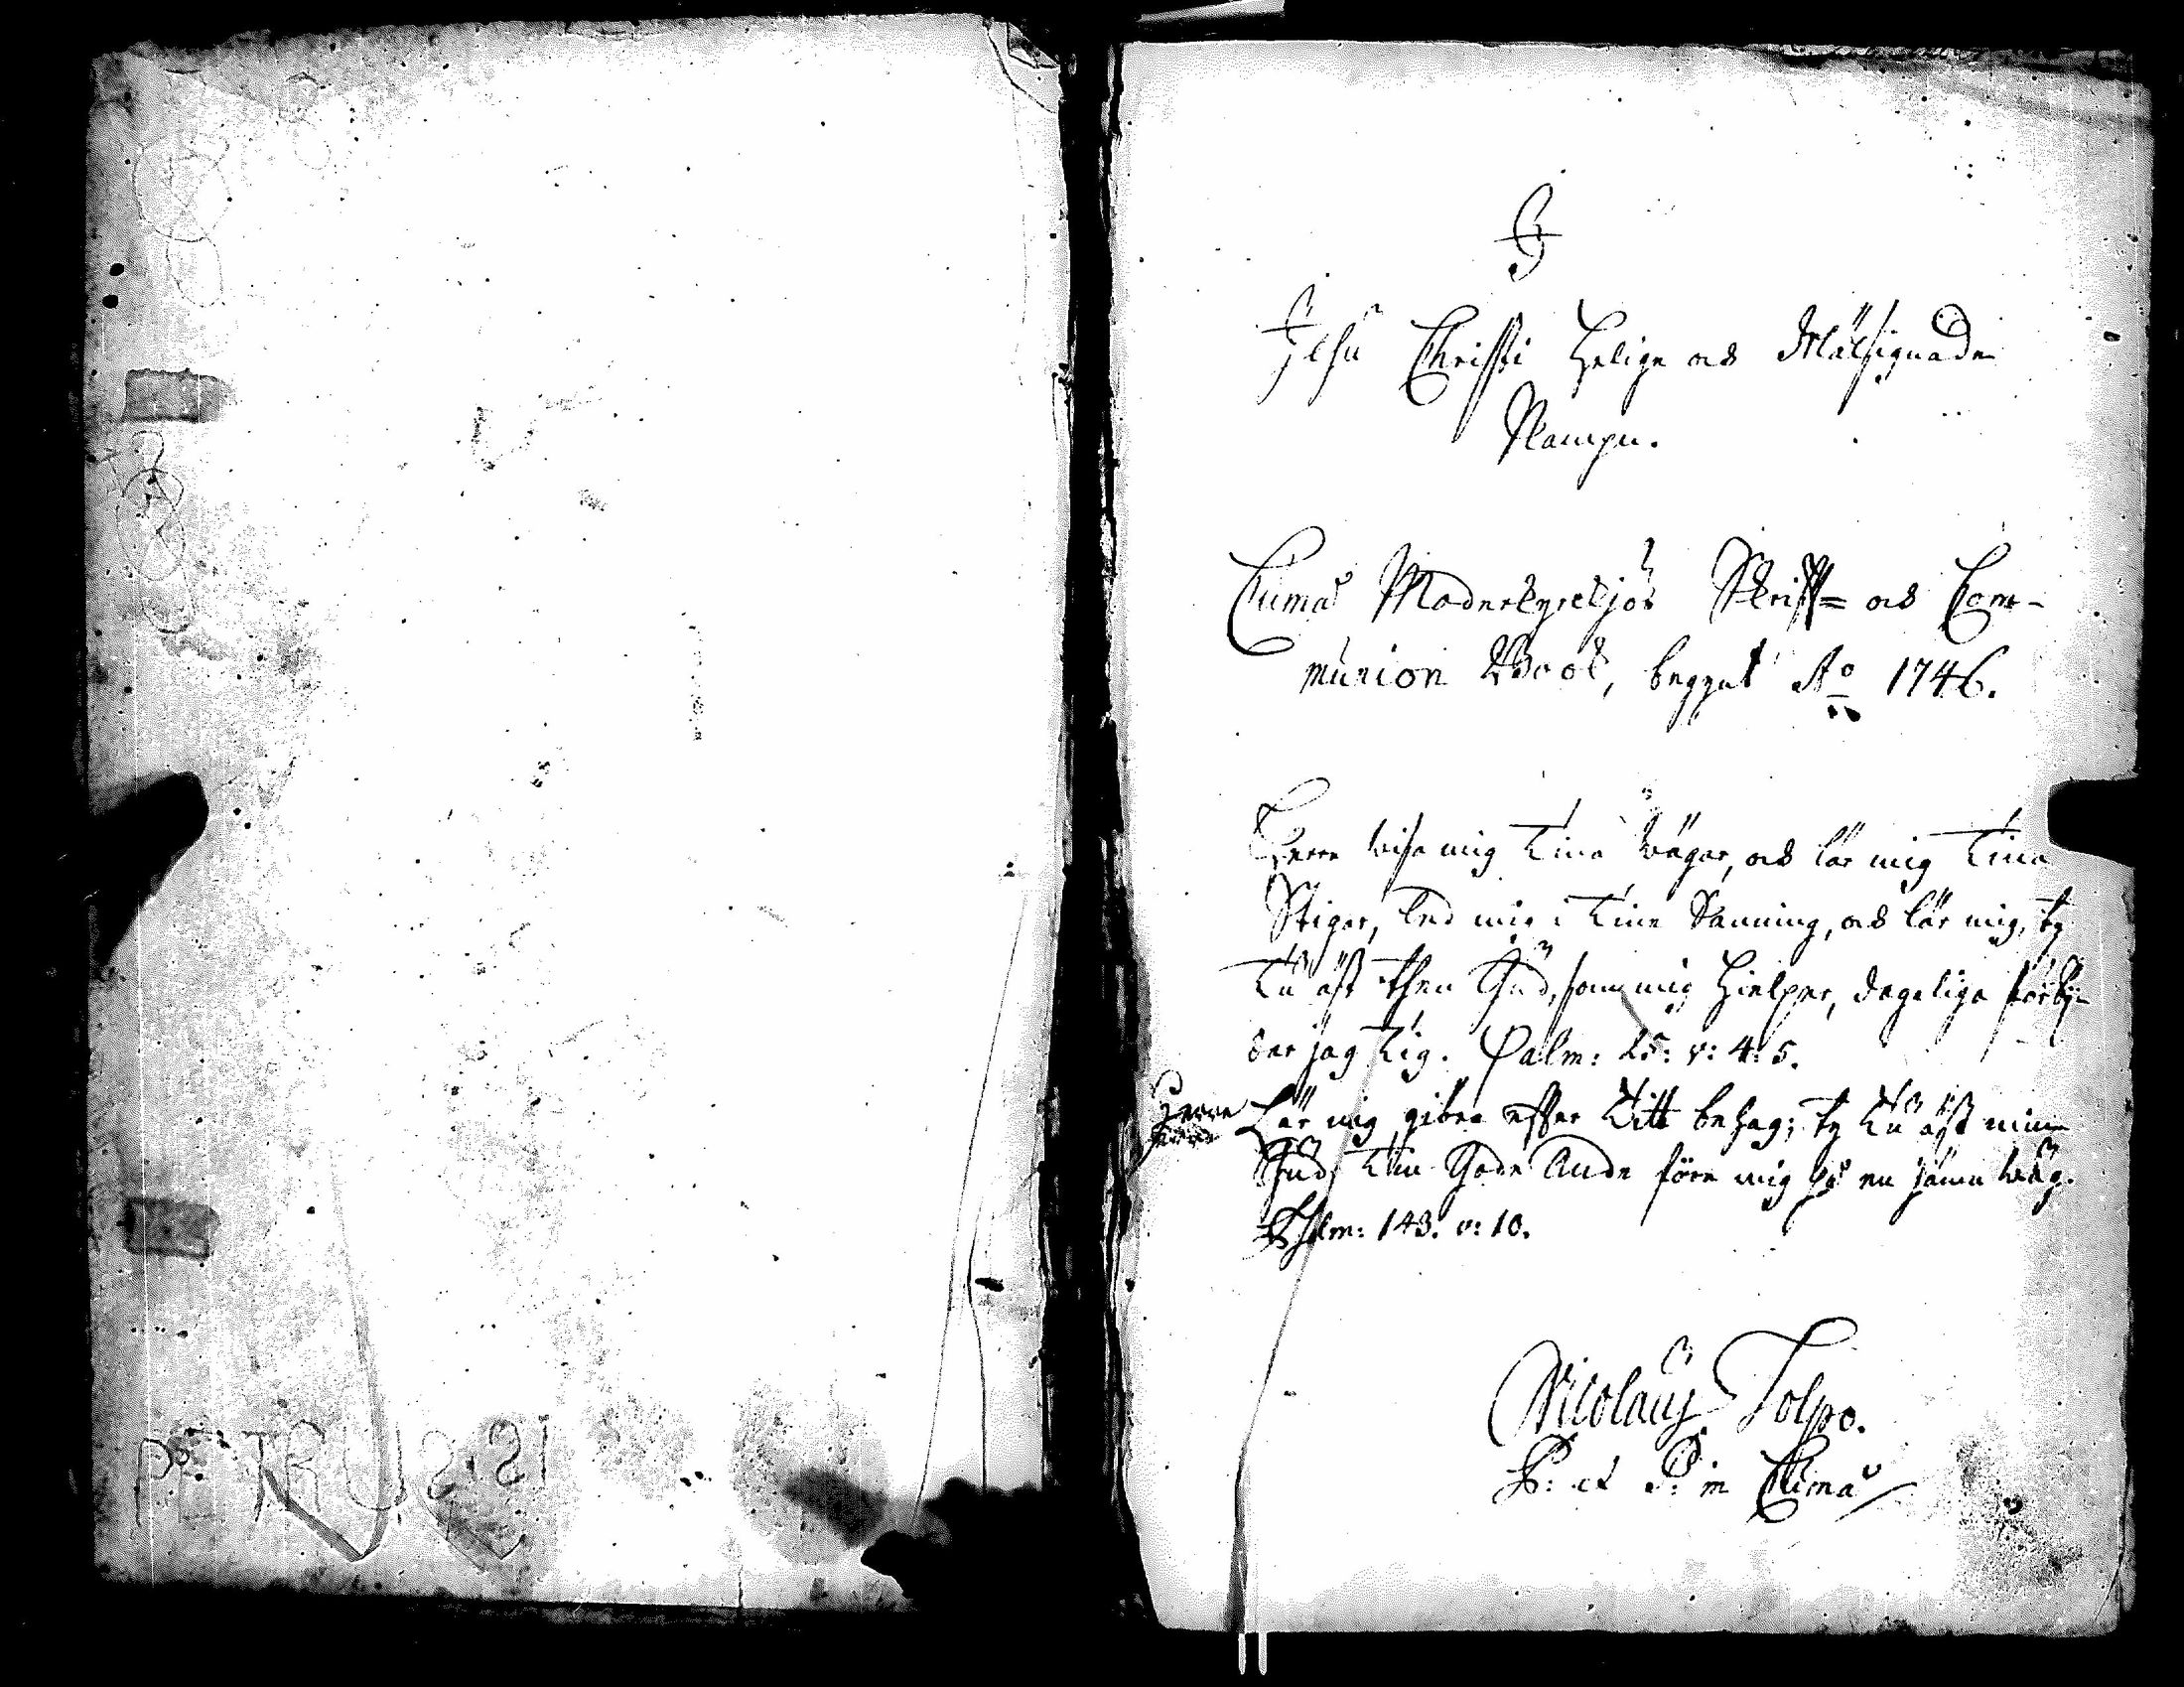 PETRUS SI
I
Jesu Christi Helige och Wälsignade
Nampn.
Cumå Moderkyrckjos Skrift= och Com-
munion Book, begynt Ao 1746.
Herre wisa mig Tina wägar, och lär mig Tina
Stigar, led mig i Tine Sanning, och lär mig, ty
Tu äst then Gud, som mig hielper, dageliga förbij-
dar jag Tig. Psalm: 25: v: 4. 5.
Herre
Lär mig göra effter Titt behag; ty Tu äst min
Gud, Tin Gode Ande före mig på en jämn wäg.
Psalm: 143. v: 10.
Nicolaus Tolpo.
P: et P: in Cumå